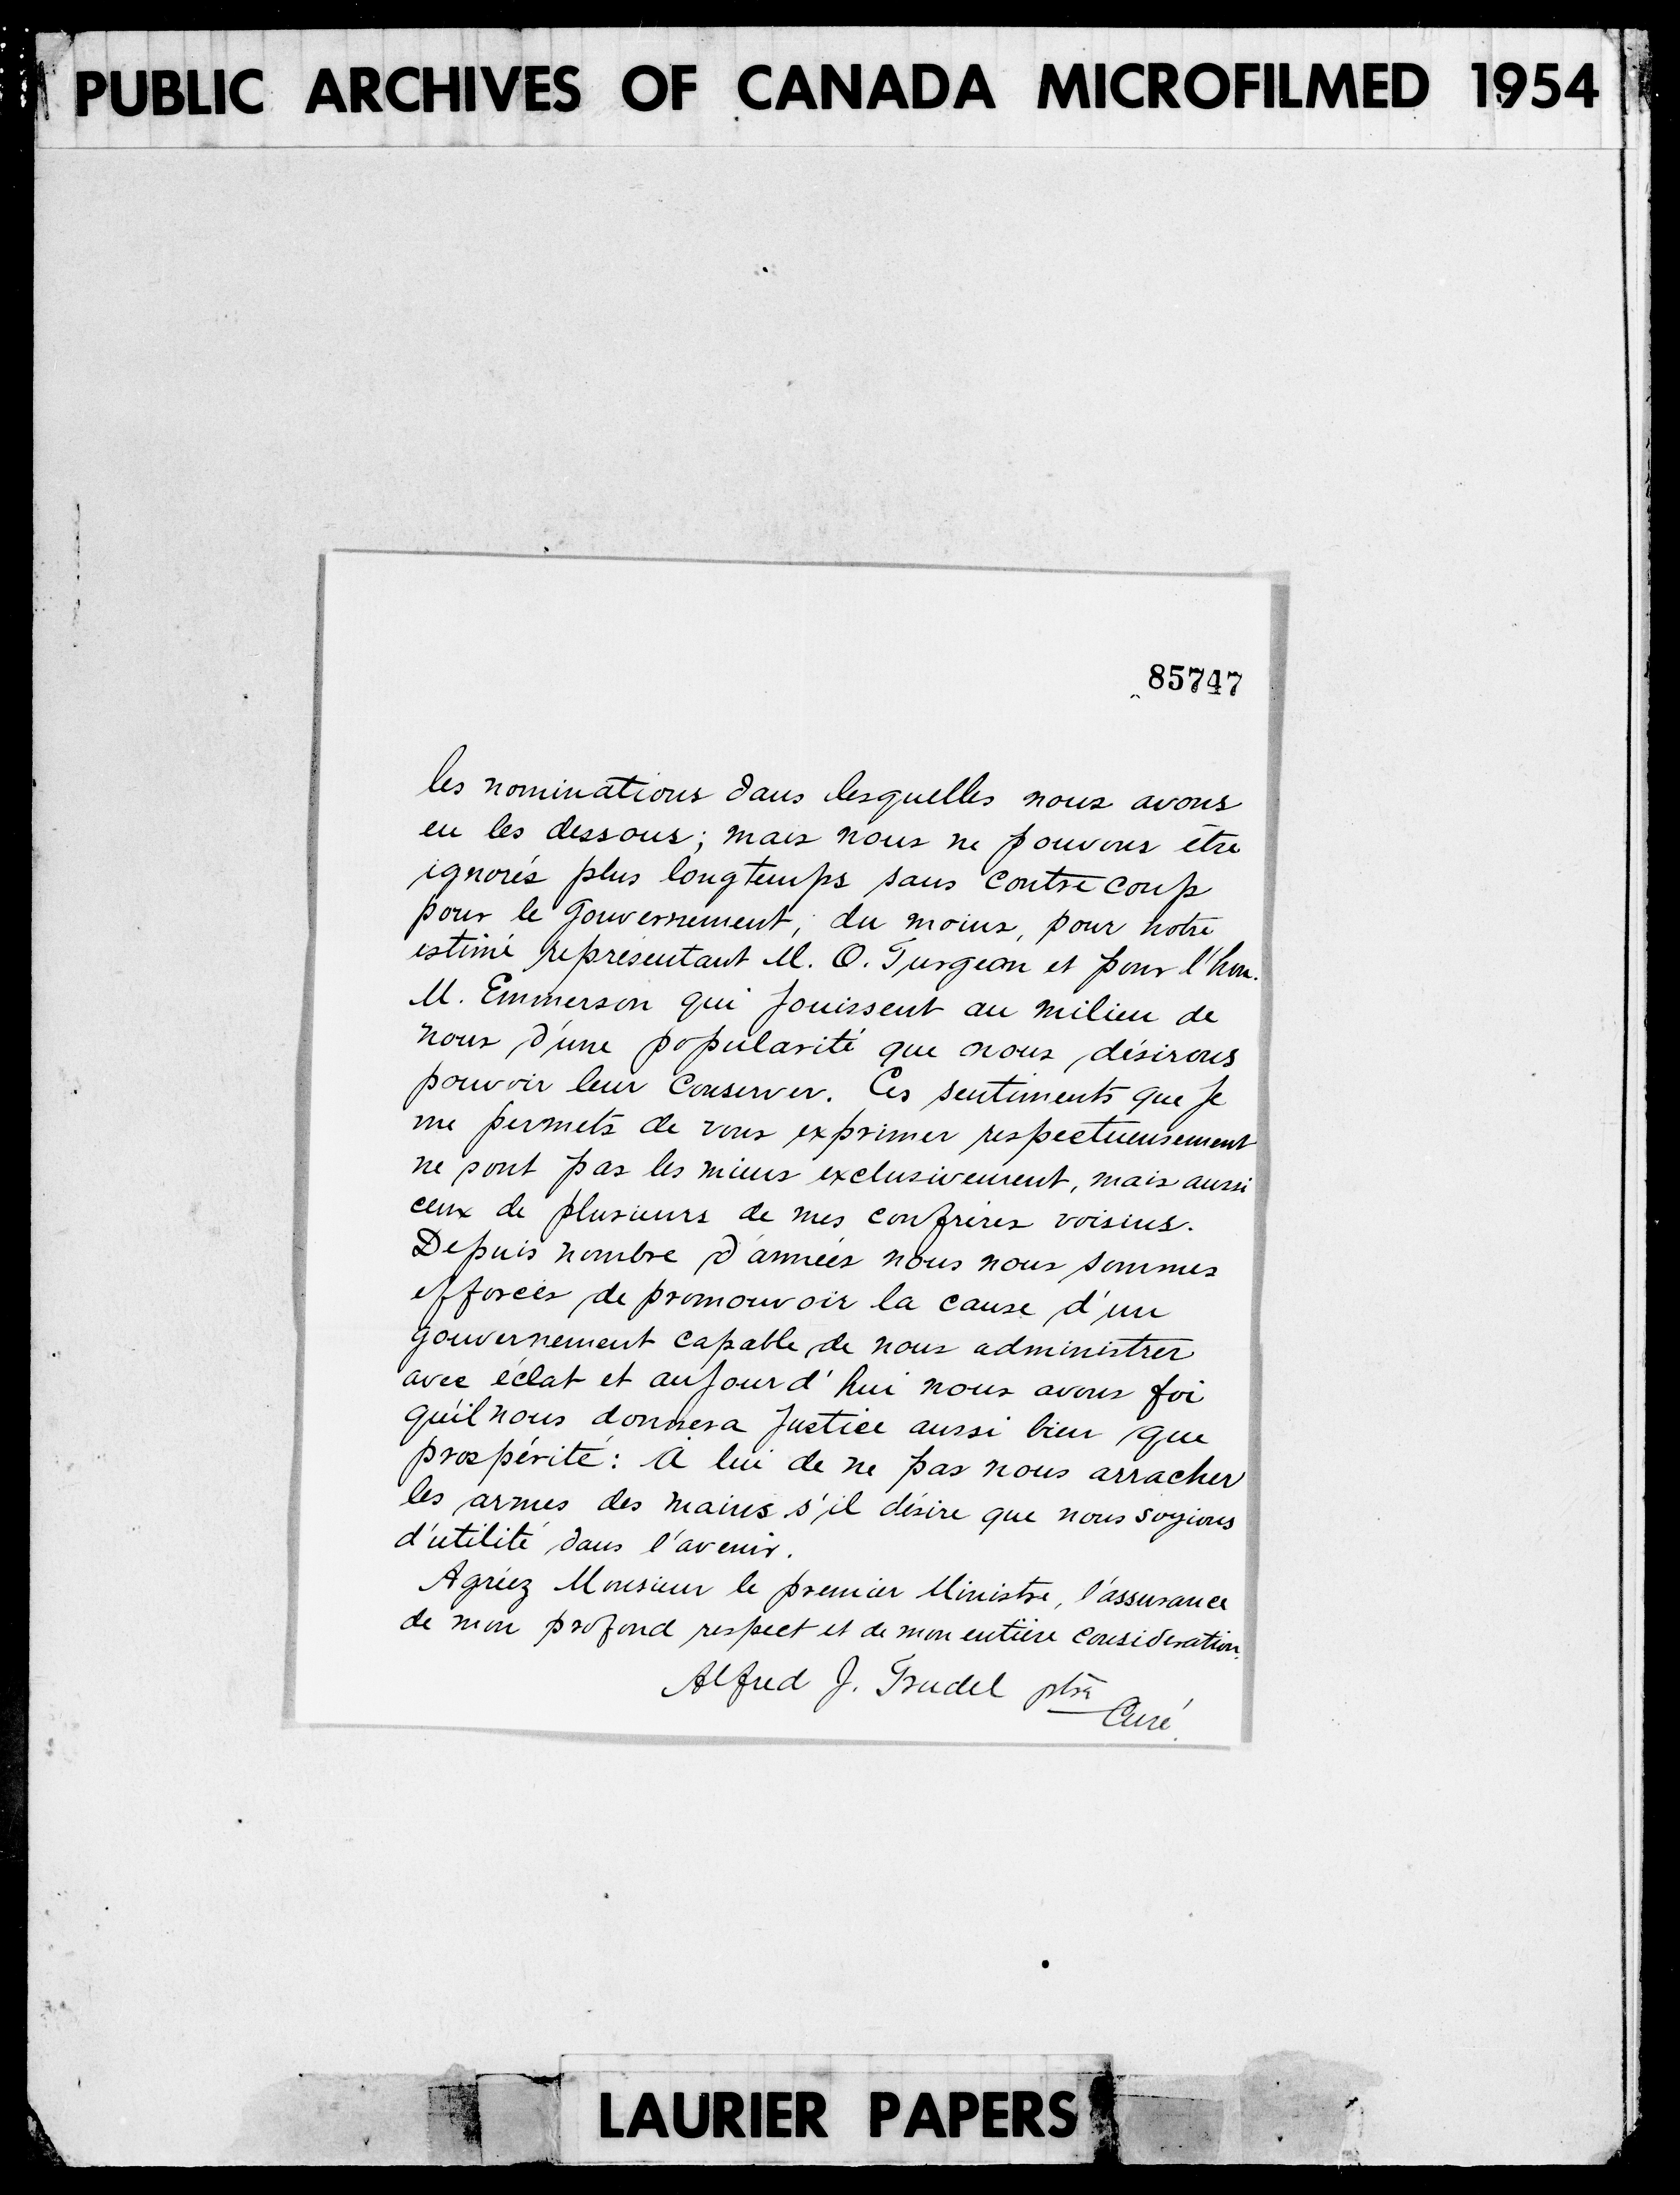 PUBLIC ARCHIVES OF CANADA MICROFILMED 1954
85747
les nominations dans lesquelles nous avons
eu les dessous; mais nous ne pouvons être
ignorés plus longtemps sans contre coup
pour le Gouvernement, du moins, pour notre
estimé représentant M. O. Turgeon et pour l'hon.
M. Emmerson qui jouissent au milieu de
nous d'une popularité que nous désirons
pouvoir leur conserver. Ces sentiments que je
me permets de vous exprimer respectueusement
ne sont pas les miens exclusivement, mais aussi
ceux de plusieurs de mes confrères voisins.
Depuis nombre d'années nous nous sommes
efforcés de promouvoir la cause d'un
gouvernement capable de nous administrer
avec éclat et aujourd'hui nous avons foi
qu'il nous donnera justice aussi bien que
prospérité: À lui de ne pas nous arracher
les armes des mains s'il désire que nous soyions
d'utilité dans l'avenir.
Agréez Monsieur le premier Ministre, l'assurance
de mon profond respect et de mon entière consideration.
Alfred J. Trudel ptre
Curé.
LAURIER PAPERS